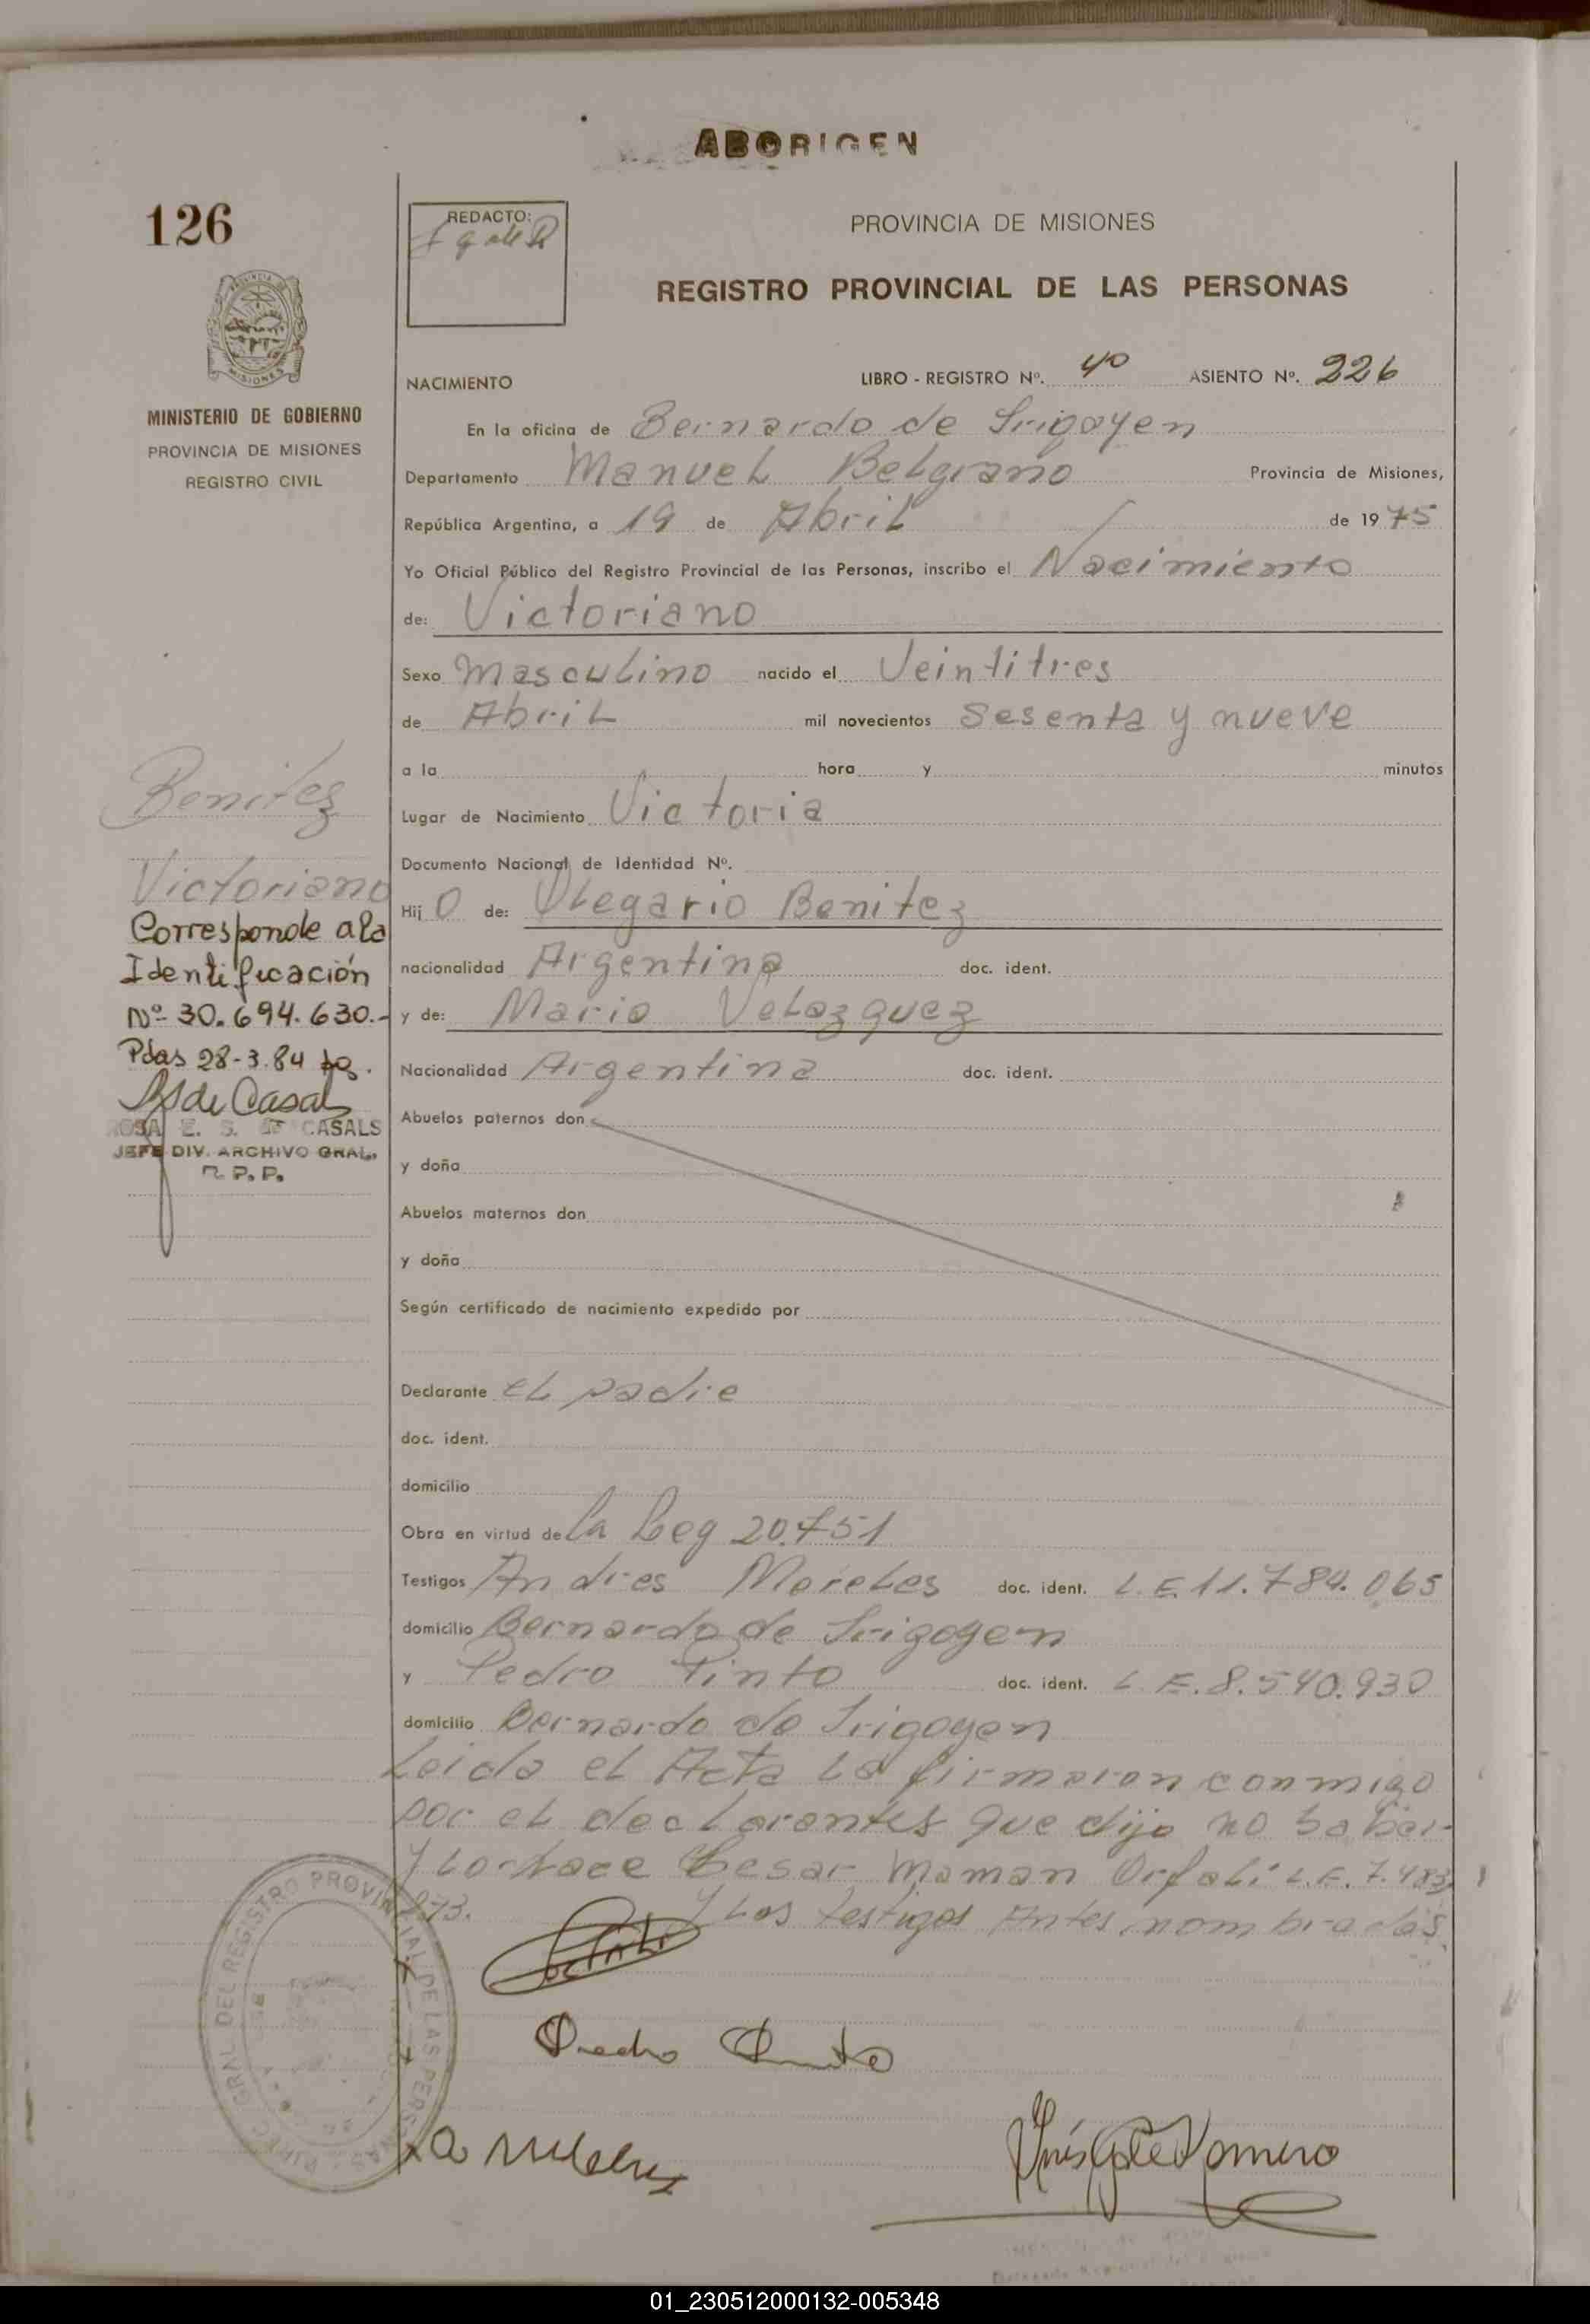 ABORIGEN
126
REDACTO:
PROVINCIA DE MISIONES
REGISTRO PROVINCIAL DE LAS PERSONAS
MISIONES
MINISTERIO DE GOBIERNO
PROVINCIA DE MISIONES
REGISTRO CIVIL
NACIMIENTO LIBRO - REGISTRO Nº. 40 ASIENTO Nº. 226
En la oficina de Bernardo de Irigoyen
Departamento Manuel Belgrano Provincia de Misiones,
República Argentina, a 19 de Abril de 1975
Yo Oficial Público del Registro Provincial de las Personas, inscribo el Nacimiento
de: Victoriano
Sexo Masculino nacido el Veintitres
de Abril mil novecientos Sesenta y nueve
a la hora y minutos
Lugar de Nacimiento Victoria
Documento Nacional de Identidad Nº.
Hij O de: Olegario Benitez
nacionalidad Argentina doc. ident.
y de: Maria Velazquez
Nacionalidad Argentina doc. ident.
Abuelos paternos don
y doña
Abuelos maternos don
y doña
Según certificado de nacimiento expedido por
Declarante el padre
doc. ident.
domicilio
Obra en virtud de la Ley 20.751
Testigos Andres Moreles doc. ident. L.E.11.784.065
domicilio Bernardo de Irigoyen
y Pedro Pinto doc. ident. L.E.8.540.930
domicilio Bernardo de Irigoyen
Leida el Acta la firmaron conmigo
por el declarantes que dijo no saber
y lo hace Cesar Maman Orfali L.E.7.483
973. y Los testigos Antes nombrados
Benitez
Victoriano
Corresponde a la
Identificación
Nº 30.694.630.-
Pdas 28-3.84
RSde Casals
ROSA E. S. de CASALS
JEFE DIV. ARCHIVO GRAL.
R. P. P.
DIREC. GRAL DEL REGISTRO PROVINCIAL DE LAS PERSONAS
Pedro Pinto
Inés G de Romero
01_230512000132-005348